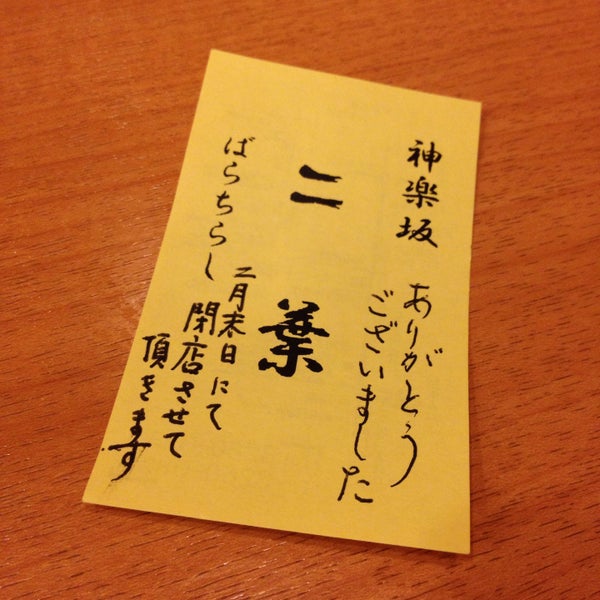 神楽坂
ありがとう
ございました
二葉
ばらちらし
二月末日にて
閉店させて
頂きます